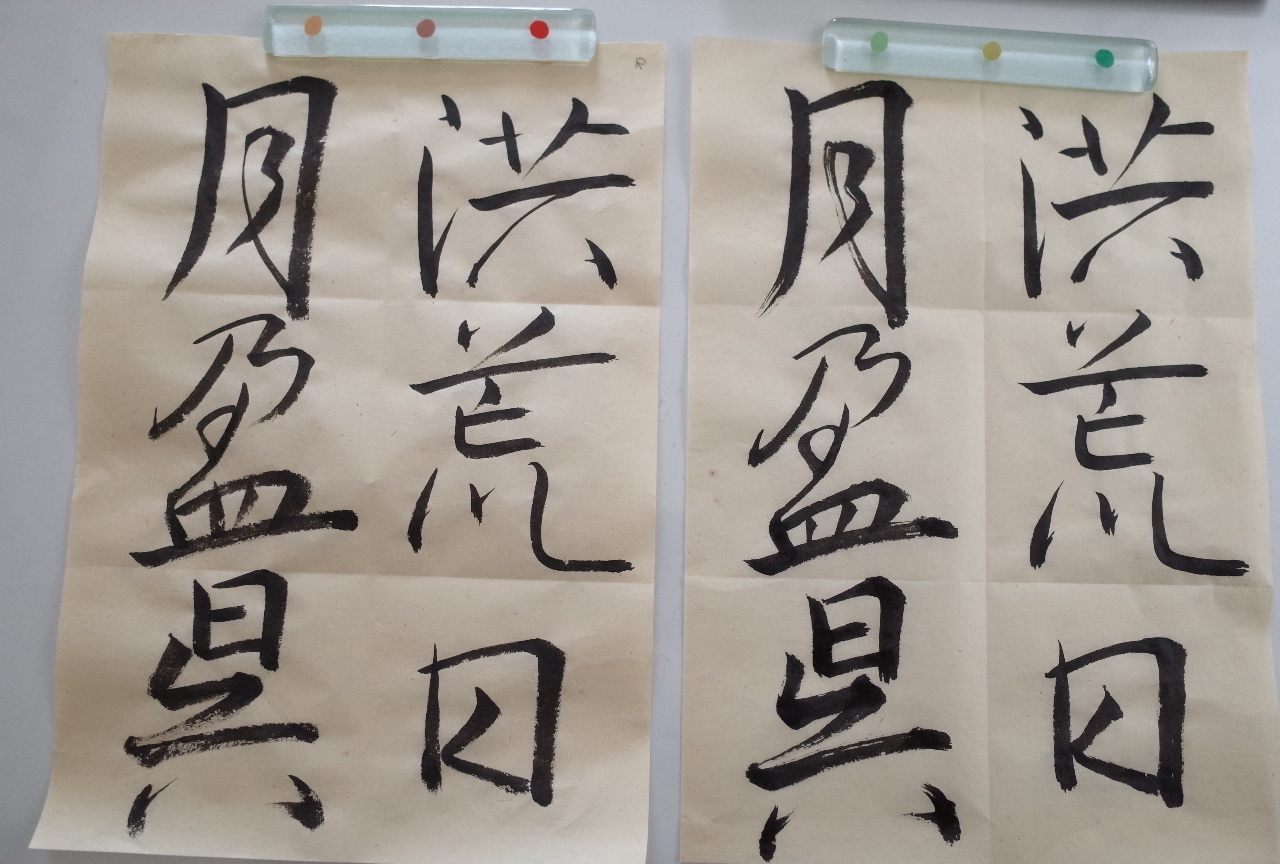 洪荒日
月盈昃
洪荒日
月盈昃